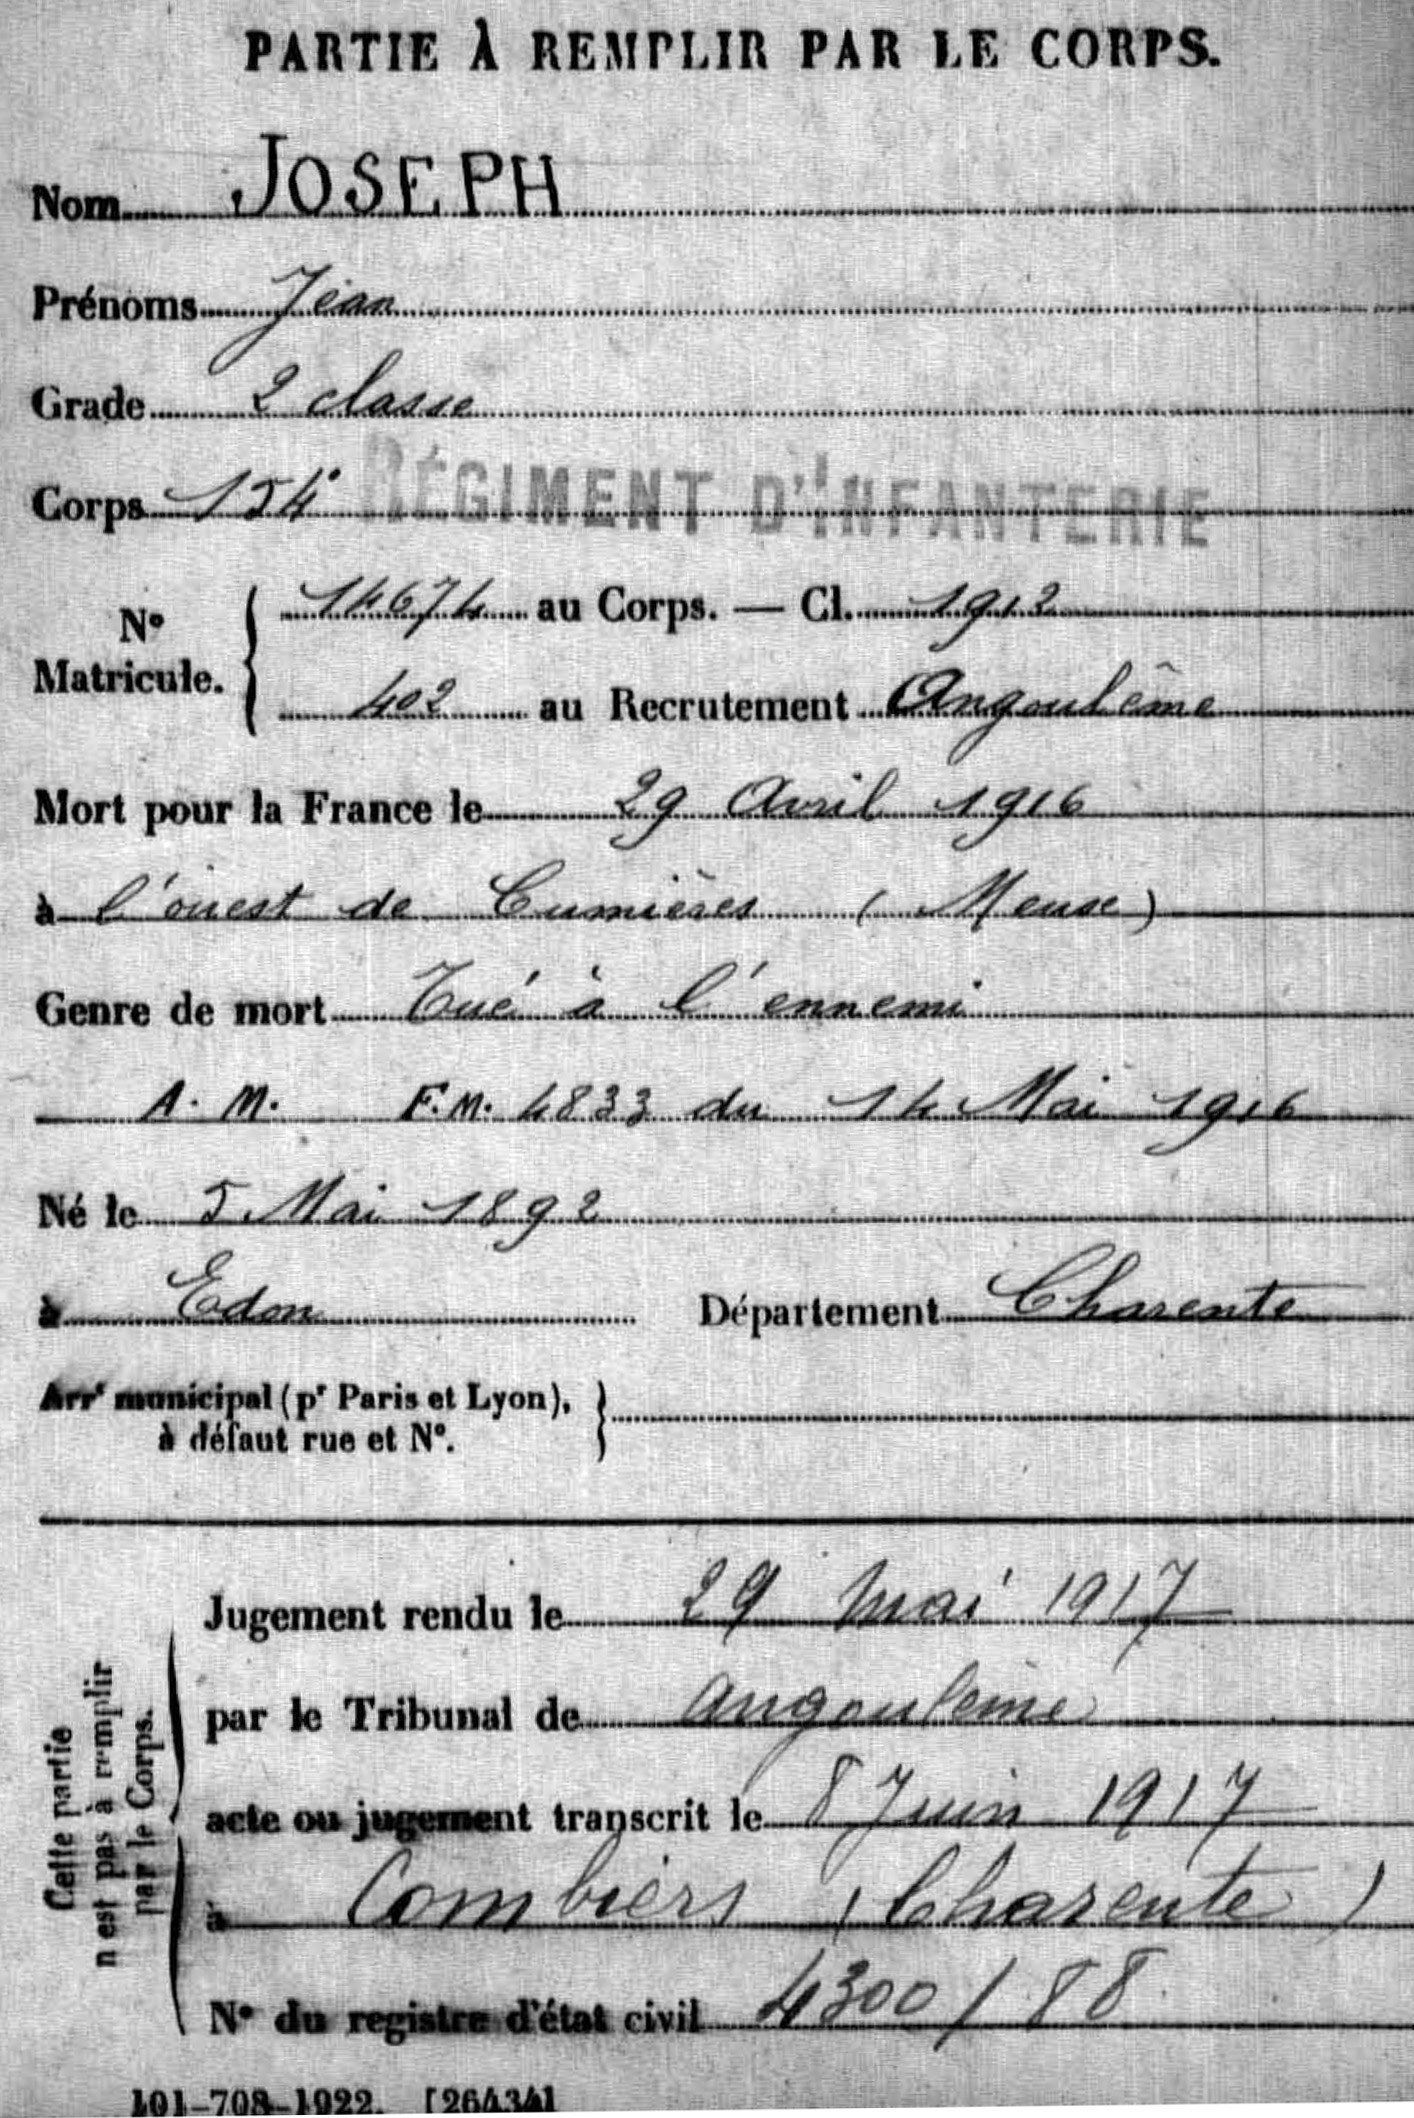 PARTIE À REMPLIR PAR LE CORPS.
Nom JOSEPH
Prénoms Jean
Grade 2 classe
Corps 154e RÉGIMENT D'INFANTERIE
N° Matricule. 14674 au Corps. — Cl. 1912
402 au Recrutement Angoulême
Mort pour la France le 29 Avril 1916
à l'ouest de Cumières (Meuse)
Genre de mort Tué à l'ennemi
A. M. F. M. 4833 du 14 Mai 1916
Né le 5 Mai 1892
à Edon Département Charente
Arrt municipal (pr Paris et Lyon),
à défaut rue et N°.
Cette partie
n'est pas à remplir
par le Corps.
Jugement rendu le 29 mai 1917
par le Tribunal de Angoulême
acte ou jugement transcrit le 8 Juin 1917
à Combiers (Charente)
N° du registre d'état civil 4300/88
101-708-1922. [26434]